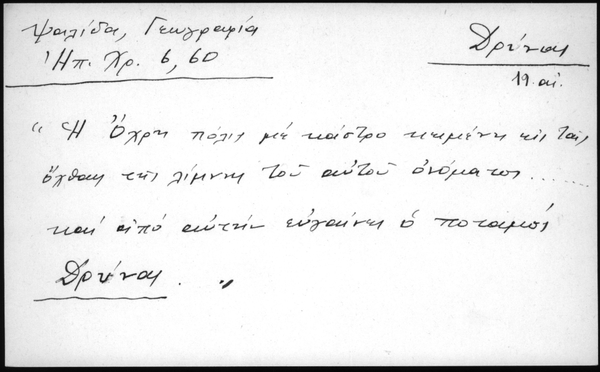 Ψαλίδα, Γεωγραφία
Ἠπ. Χρ. 6, 60
Δρύνος
19 αἰ.
"Ἡ Ὄχρη πόλις μέ κάστρο κειμένη εἰς τάς
ὄχθας τῆς λίμνης τοῦ αὐτοῦ ὀνόματος......
καί ἀπό αὐτήν εὐγαίνει ὁ ποταμός
Δρύνος. "